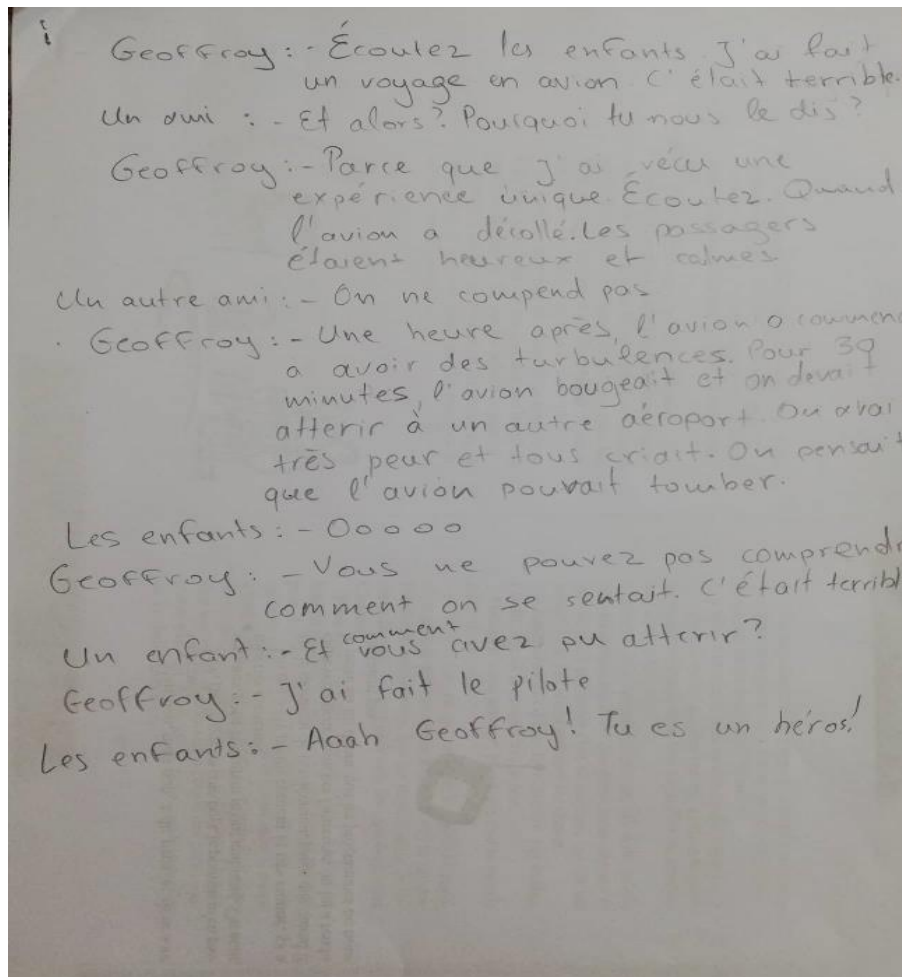 Geoffroy : - Écoutez les enfants. J'ai fait
un voyage en avion. C'était terrible.
Un ami : - Et alors? Pourquoi tu nous le dis?
Geoffroy : - Parce que J'ai vécu une
expérience unique. Écoutez. Quand
l'avion a décollé. Les passagers
étaient heureux et calmes.
Un autre ami : - On ne compend pas
Geoffroy : - Une heure après, l'avion a commenc
a avoir des turbulences. Pour 39
minutes, l'avion bougeait et on devait
atterir à un autre aéroport. On avai
très peur et tous criait. On pensait
que l'avion pouvait tomber.
Les enfants : - Ooooo
Geoffroy : - Vous ne pouvez pas comprendr
comment on se sentait. C'était terribl
Un enfant : - Et comment vous avez pu atterir?
Geoffroy : - J'ai fait le pilote
Les enfants : - Aaah Geoffroy! Tu es un héros!